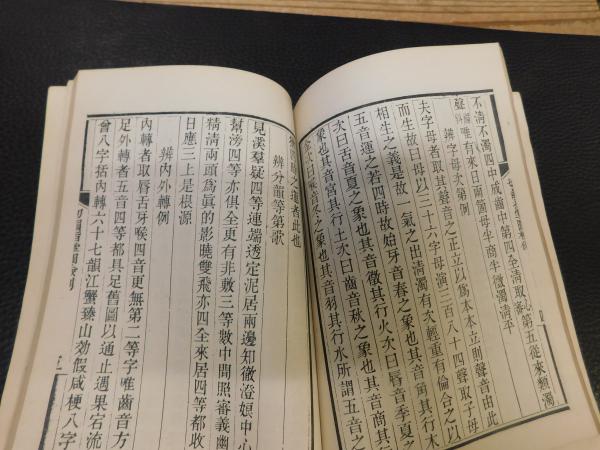 不淸不濁四中成齒中第四全淸取第五從來類濁
聲唯有來日兩箇母半商半徵濁淸平
辨字母次第例
夫字母者取其聲音之正立以爲本本立則聲音由此
而生故曰母以三十六字母演三百八十四聲取子母
相生之義是故一氣之出淸濁有次輕重有倫合之以
五音運之若四時故始牙音春之象也其音角其行木
次曰舌音夏之象也其音徵其行火次曰唇音季夏之
象也其音宮其行土次曰齒音秋之象也其音商其行
次曰喉音冬之象也其音羽其行水所謂五音之
之
者此也
辨分韻等第歌
見溪羣疑四等連端透定泥居兩邊知徹澄娘中心
幫滂四等亦俱全更有非敷三等數中間照審義幽
精淸兩頭爲眞的影曉雙飛亦四全來居四等都收
日應三上是根源
辨內外轉例
內轉者取唇舌牙喉四音更無第二等字唯齒音方
足外轉者五音四等都具足舊圖以通止遇果宕流
曾八字括內轉六十七韻江蟹臻山効假咸梗八字
切韻指掌圖檢例